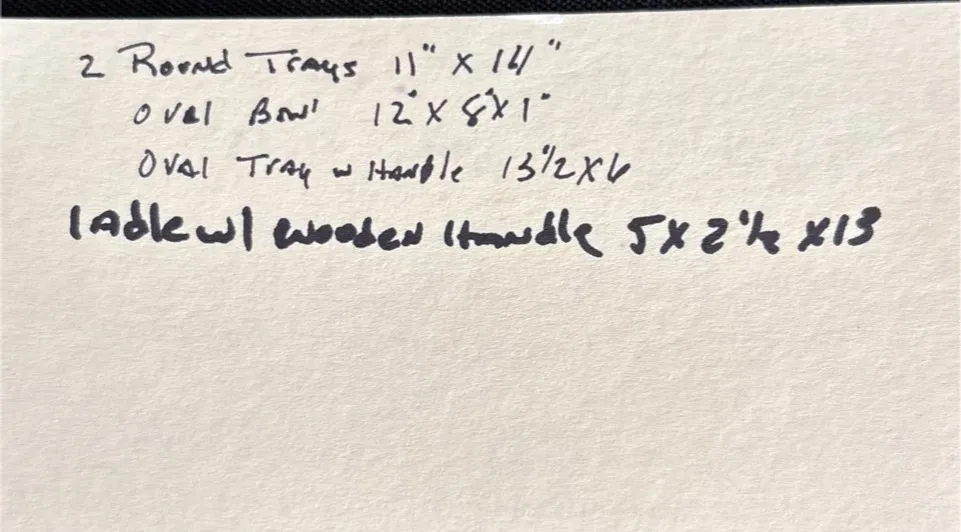 2 Round Trays 11" x 14"
Oval Bowl 12" x 8" x 1"
Oval Tray w Handle 13 1/2 x 6
ladle w/ wooden Handle 5 x 2 1/2 x 13